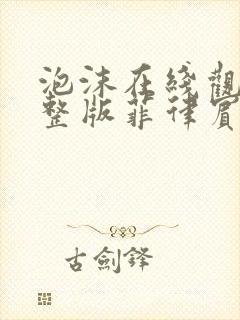 泡沫在綫觀
整版菲律賓
古劍鋒